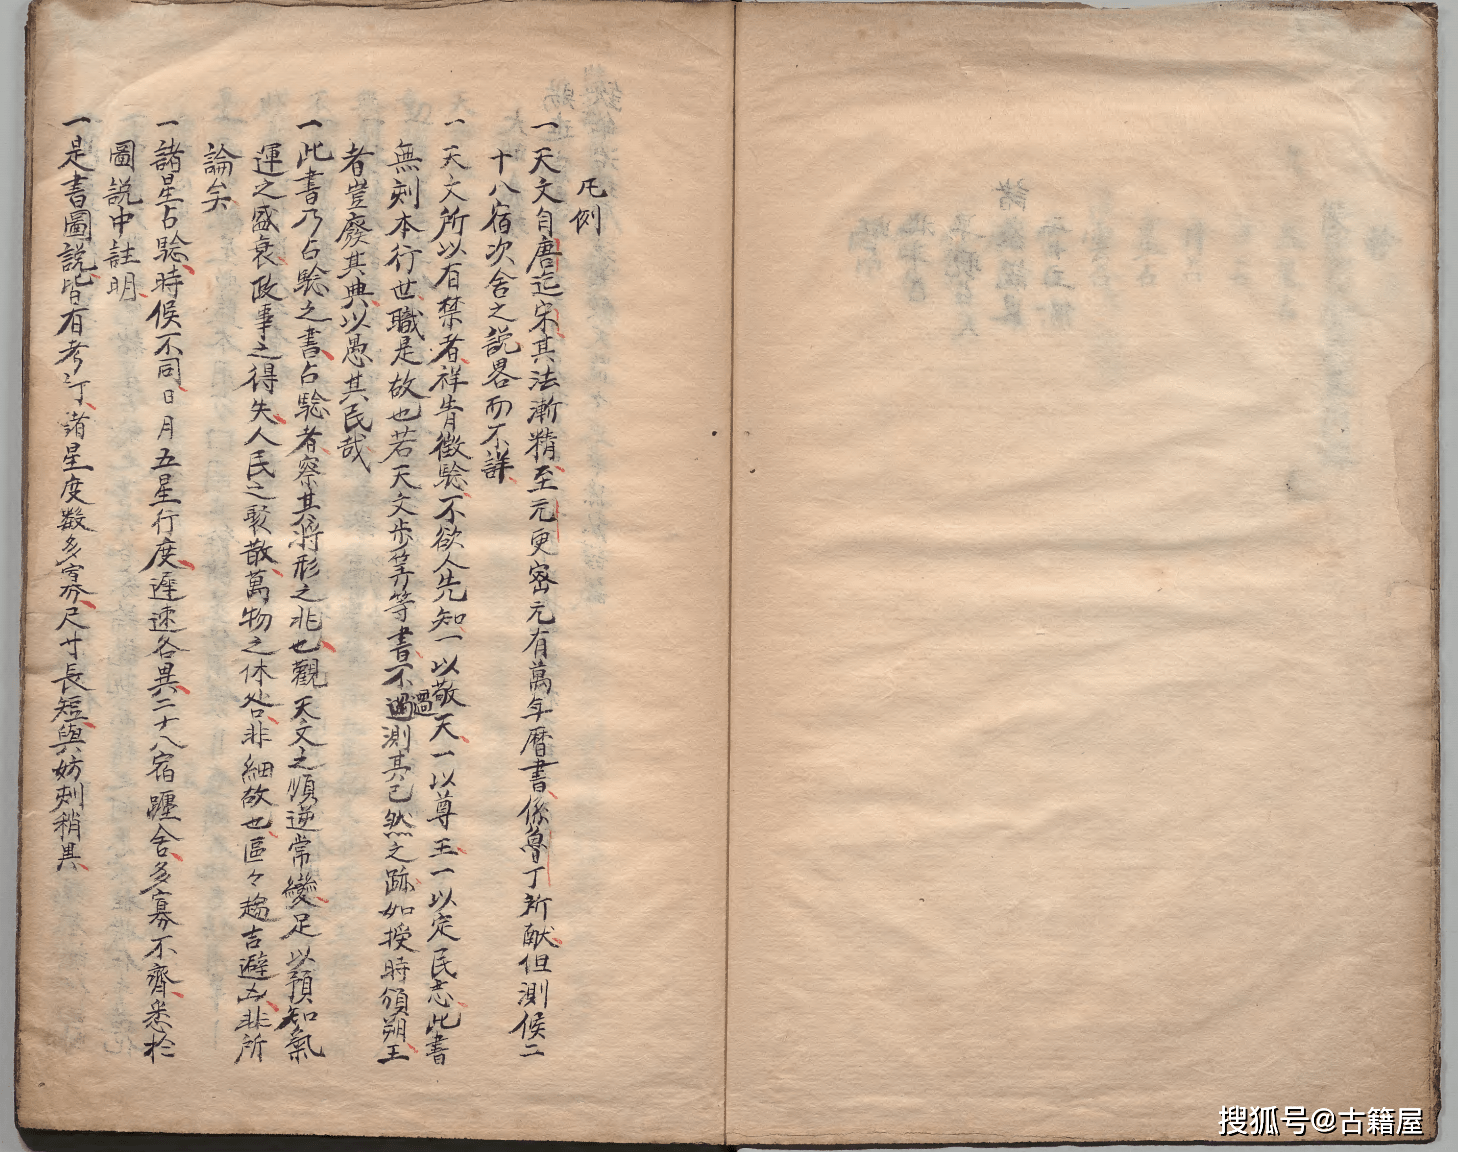 凡例
一天文自唐迄宋其法漸精至元更密元有萬年曆書係魯丁所献但測候二
十八宿次舍之説畧而不詳
一天文所以有禁者祥眚徴驗不欲人先知一以敬天一以尊王一以定民志此書
無刻本行世職是故也若天文步筭等書不過測其已然之跡如授時頒朔王
者豈廢其典以愚其民哉
一此書乃占驗之書占驗者察其將形之兆也觀天文之順逆常變足以預知氣
運之盛衰政事之得失人民之聚散萬物之休咎非細故也區々趨吉避凶非所
論矣
一諸星占驗時候不同日月五星行度遲速各異二十八宿躔舍多寡不齊悉於
圖説中註明
一是書圖説皆有考訂諸星度数多寡尺寸長短與坊刻稍異
搜狐号@古籍屋